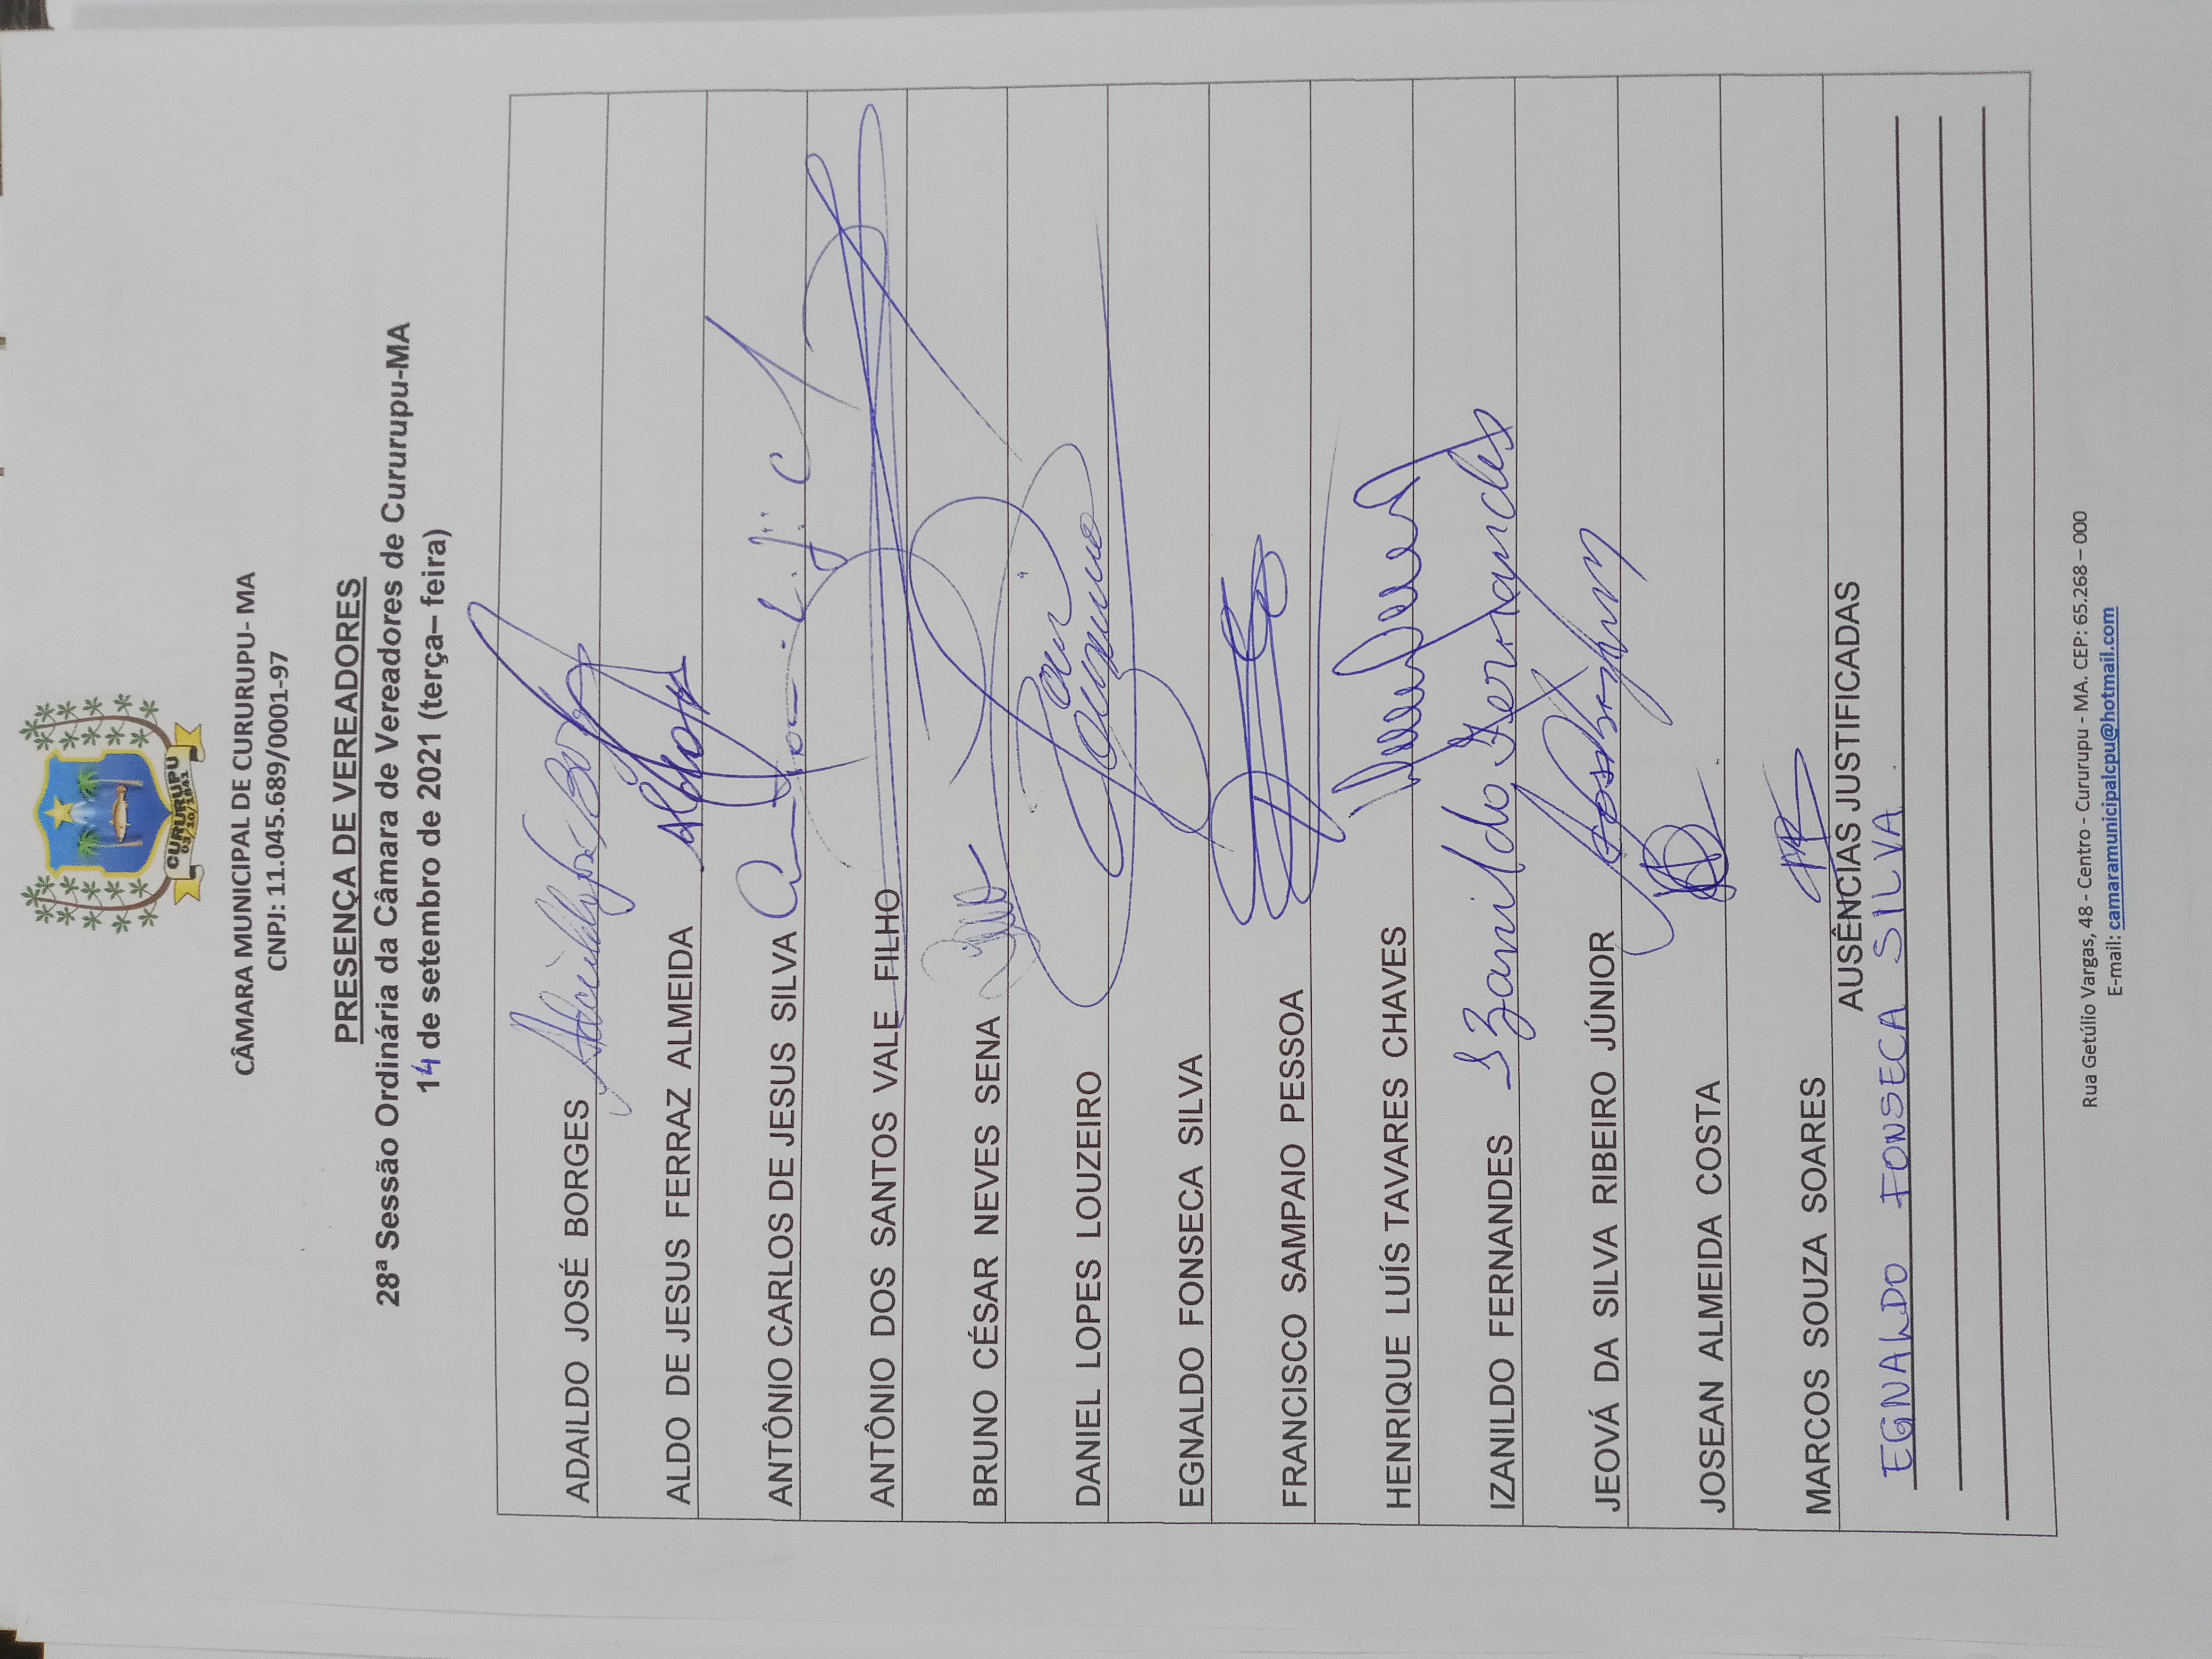 CURURUPU
03/10/1841
CÂMARA MUNICIPAL DE CURURUPU- MA
CNPJ: 11.045.689/0001-97
PRESENÇA DE VEREADORES
28ª Sessão Ordinária da Câmara de Vereadores de Cururupu-MA
14 de setembro de 2021 (terça– feira)
ADAILDO JOSÉ BORGES
ALDO DE JESUS FERRAZ ALMEIDA
ANTÔNIO CARLOS DE JESUS SILVA
ANTÔNIO DOS SANTOS VALE FILHO
BRUNO CÉSAR NEVES SENA
DANIEL LOPES LOUZEIRO
EGNALDO FONSECA SILVA
FRANCISCO SAMPAIO PESSOA
HENRIQUE LUÍS TAVARES CHAVES
IZANILDO FERNANDES Izanildo Fernandes
JEOVÁ DA SILVA RIBEIRO JÚNIOR
JOSEAN ALMEIDA COSTA
MARCOS SOUZA SOARES
AUSÊNCIAS JUSTIFICADAS
EGNALDO FONSECA SILVA.
Rua Getúlio Vargas, 48 - Centro - Cururupu - MA. CEP: 65.268 – 000
E-mail: camaramunicipalcpu@hotmail.com